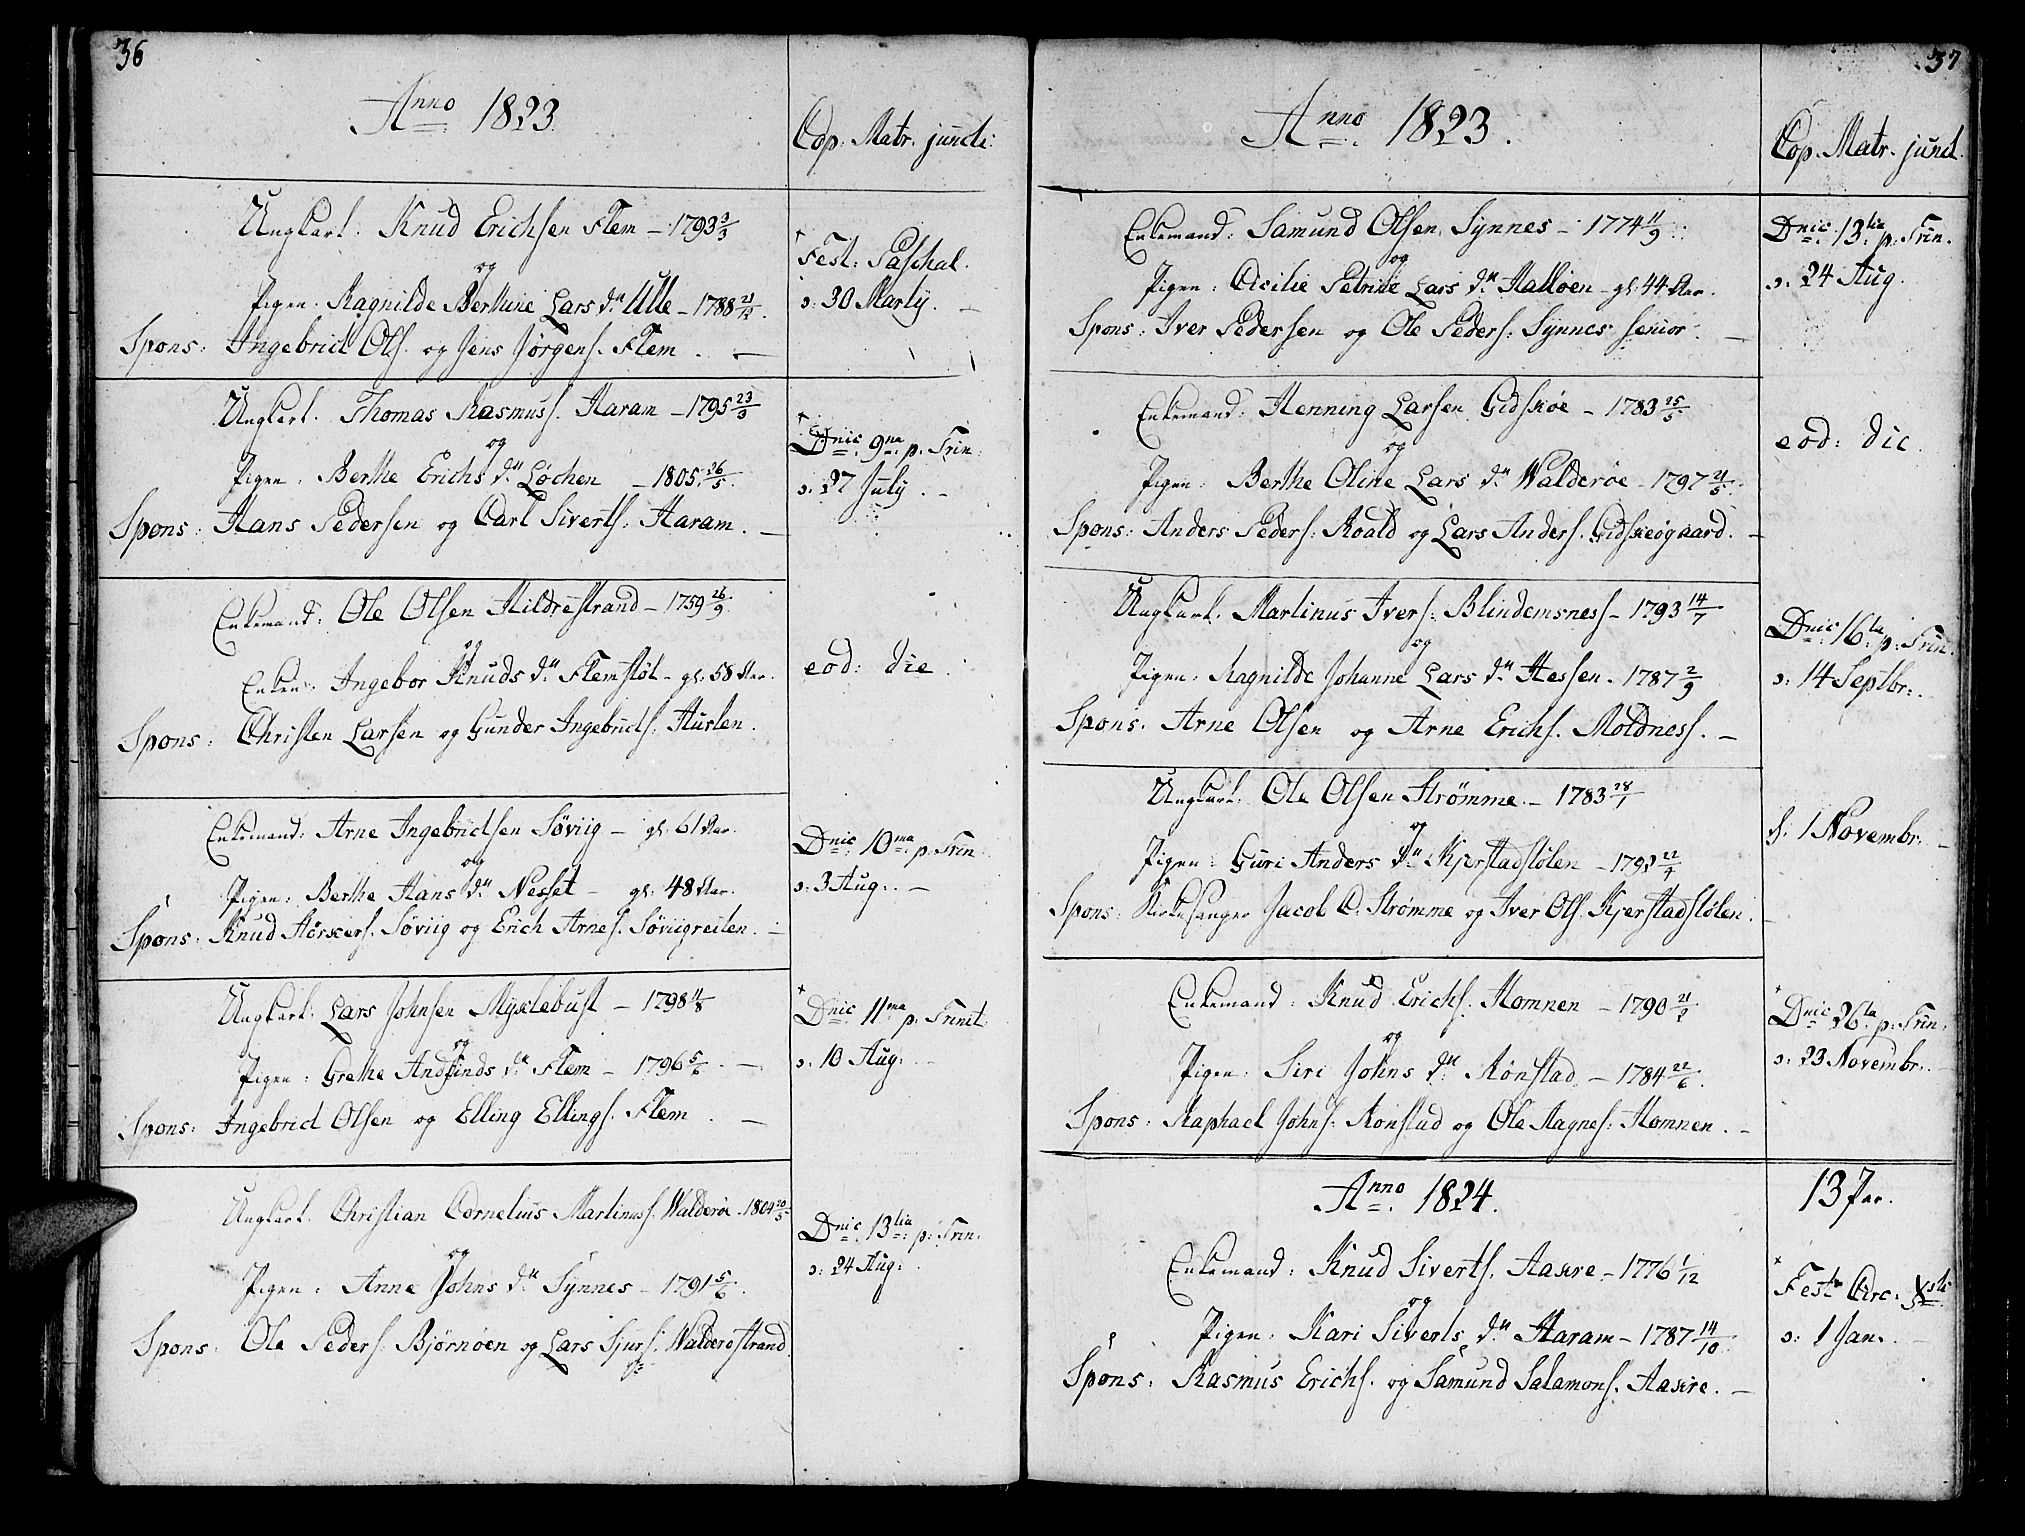 36
Anno 1823.
Cop: Matr. juncti:
Ungkarl. Knud Erichsen Flem – 1793 3/3
og
Pigen: Ragnilde Berthine Lars d.tr Ulle – 1788 21/12
Spons: Ingebrict Ols. og Jens Jørgens. Flem. –
Fest: Paschal.
ɔ: 30 Martij. –
Ungkarl. Thomas Rasmuss. Haram – 1795 23/3
og
Pigen: Berthe Erichs d.tr Løchen – 1805. 26/5.
Spons: Hans Pedersen og Carl Siverts. Haram. –
Dnic: 9na p: Trin:
ɔ: 27 July. –
Enkemand: Ole Olsen Hildrestrand – 1759 26/9.
og
Enken: Ingebor Knuds d.tr Flemstøl – gl: 58 Aar.
Spons: Christen Larsen og Gunder Ingebricts. Huslen.
eod: die.
Enkemand: Arne Ingebrictsen Søviig – gl: 61 Aar.
og
Pigen: Berthe Hans d.tr Nesset – gl: 48 Aar.
Spons: Knud Hørskers. Søviig og Erich Arnes. Søviigreiten. –
Dnic: 10ma p: Trin
ɔ: 3 Aug:. –
Ungkarl: Lars Johnsen Myklebust – 1798 11/8
og
Pigen: Grethe Andfinds d.tr Flem – 1796 5/6. –
Spons: Ingebrict Olsen og Elling Ellings. Flem. –
Dnic: 11ma p: Trinit:
ɔ: 10 Aug: –
Ungkarl. Christian Cornelius Martinuss. Walderøe. 1804 20/5
og
Pigen: Anne Johns d.tr Synnes – 1791 5/6.
Spons: Ole Peders. Bjørnøen og Lars Sjurs: Walderøstrand.
Dnic: 13tia p: Trin:
ɔ: 24 Aug:.
37
Anno 1823.
Cop. Matr. junct.
Enkemand: Samund Olsen Synnes – 1774 11/9.
og
Pigen: Cicilie Petrine Lars d.tr Halløen – gl: 44 Aar.
Spons: Iver Pedersen og Ole Peders: Synnes senior. –
Dnic: 13tia p: Trin.
ɔ: 24 Aug.
Enkemand: Henning Larsen Gidskøe – 1783 25/5
og
Pigen: Berthe Oline Lars d.tr Walderøe – 1797 21/5.
Spons: Anders Peders: Roald og Lars Anders. Gidskøgaard. –
eod: die.
Ungkarl. Martinus Ivers: Blindemsness – 1793 14/7
og
Pigen: Ragnilde Johanne Lars d.tr Hessen. 1787 2/9
Spons: Arne Olsen og Arne Erichs. Moldness. –
Dnic: 16ta p: Trin:
ɔ: 14 Septbr:.
Ungkarl: Ole Olsen Strømme – 1783 28/1
og
Pigen: Guri Anders d.tr Kjerstadstølen – 1793 22/4
Spons: Kirkesanger Jacob O. Strømme og Iver Ols. Kjerstadstølen. –
d: 1 Novembr. –
Enkemand: Knud Erichs. Homnen – 1790 21/2
og
Pigen: Siri Johns d.tr Rønstad – 1784 22/6.
Spons: Raphael Johns: Rønstad og Ole Magnes: Homnen. –
Dnic: 26ta p: Trin:
ɔ: 23 Novembr:.
Anno 1824.
13 Par.
Enkemand: Knud Siverts. Aakre – 1776 1/12
og
Pigen: Kari Siverts d.tr Haram – 1787 14/10.
Spons: Rasmus Erichs. og Samund Salamons. Aakre. –
Festo Circ: Xsti
ɔ: 1 Jan. –